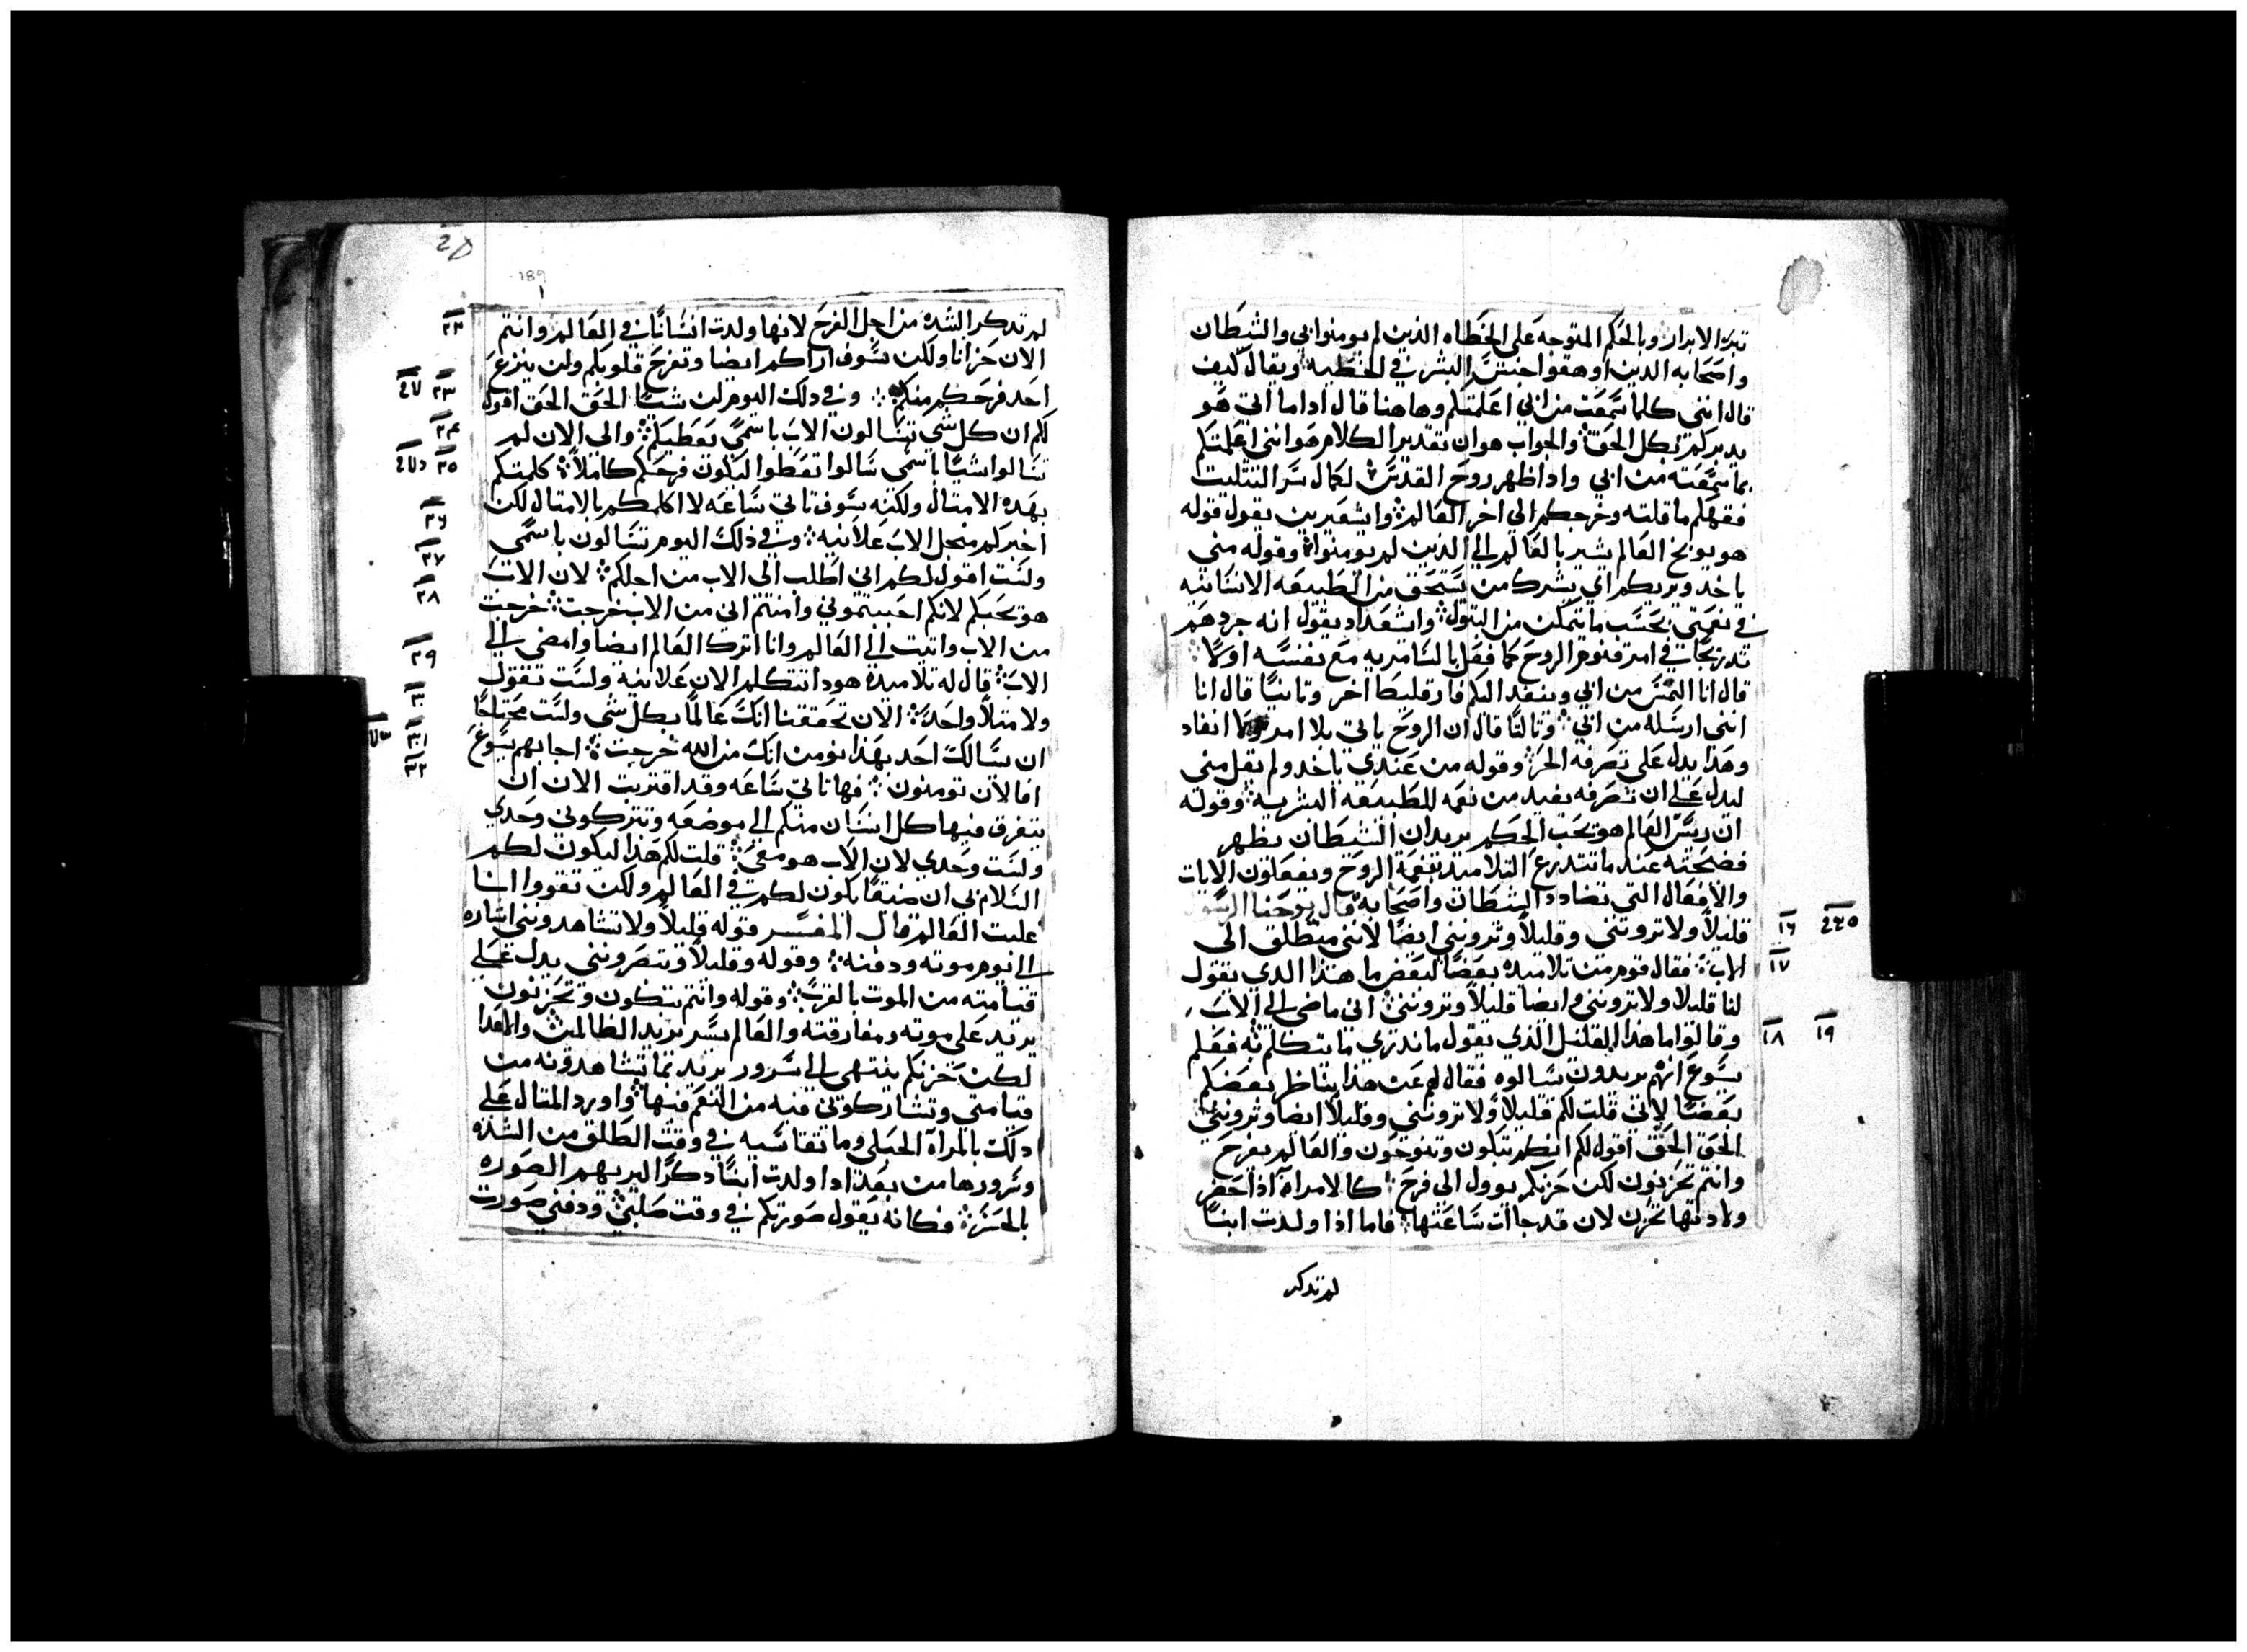 تبره الابرار وبالحكم المتوجه على الخطاه الذين لم يومنوا بي والشيطان
واصحابه الذين اوهقوا جنس البشر في الخطيه ويقال كيف
قال انني كلما سمعت من ابي اعلمتكم وهاهنا قال اذا ما اتى هو
يدبركم بكل الحق والجواب هو ان تقدير الكلام هو انني اعلمتكم
بما سمعته من ابي واذا ظهر روح القدس لكمال سر التتليت
فقهكم ما قلته وخرجكم الى اخر العالم وايشعيرين يقول قوله
هو يوبخ العالم يشير بالعالم الى الذين لم يومنوا وقوله مني
ياخد ويريكم اي يشرك من يستحق من الطبيعه الانسانيه
في نعمتي بحسب ما يتمكن من القبول وايشعداد يقول انه جردهم
تدريجا في امر قنوم الروح كما فعل بالسامريه مع نفسه اولا
قال انا التمس من ابي وينفد اليكم فارقليط اخر وتانيا قال انا
انني ارسله من ابي وتالتا قال ان الروح ياتي بلا امر ولا انفاد
وهذا يدل على تصرفه الحر وقوله من عندي ياخد ولم يقل مني
ليدل على ان تصرفه يفيد من نعمه للطبيعه البشريه وقوله
ان ريس العالم هو تحت الحكم يريد ان الشيطان يظهر
فضيحته عند ما تتدرع التلاميد بنعمة الروح ويفعلون الايات
والافعال التي تضادد الشيطان واصحابه قال يوحنا الرسول
قليلا ولا تروني وقليلا وتروني ايضا لانني منطلق الى ١٦ ٢٢٥
الاب فقال قوم من تلاميده بعضا لبعض ما هذا الدي يقول ١٧
لنا قليلا ولا تروني وايضا قليلا وتروني اني ماضي الى الاب
وقالوا ما هذا القليل الذي يقول ما ندري ما يتكلم به فعلم ١٨ ١٩
يسوع انهم يريدون يسالوه فقال لهم عن هذا يناظر بعضكم
بعضا لاني قلت لكم قليلا ولا تروني وقليلا ايضا وتروني
الحق الحق اقول لكم انكم تبكون وتنوحون والعالم يفرح
وانتم تحزنون لكن حزنكم يوول الى فرح كالامراة اذا حضر
ولادتها تحزن لان قد جاات ساعتها فاما اذا ولدت ابنا
لم تدكر
189
لم تدكر الشده من اجل الفرح لانها ولدت انسانا في العالم وانتم ٢٢
الان حزانا ولكن سوف اراكم ايضا وتفرح قلوبكم ولن ينزع
احد فرحكم منكم وفي دلك اليوم لن شيا الحق الحق اقول ٢٣
لكم ان كل شي تسالون الاب باسمي يعطيكم والى الان لم ٢٤
تسالوا شيا باسمي سالوا تعطوا ليكون فرحكم كاملا كلمتكم ٢٥
بهده الامتال ولكنه سوف تاتي ساعه لا اكلمكم بالامتال لكن
اخبركم من اجل الاب علانيه وفي ذلك اليوم تسالون باسمي ٢٦
ولست اقول لكم اني اطلب الى الاب من اجلكم لان الاب ٢٧
هو يحبكم لانكم احببتموني وامنتم اني من الاب خرجت خرجت ٢٨
من الاب واتيت الى العالم وانا اترك العالم ايضا وامضي الى
الاب قال له تلاميده هودا تتكلم الان علانيه ولست تقول ٢٩
ولا متلا واحدا الان تحققنا انك عالما بكل شي ولست محتاجا ٣٠
ان يسالك احد بهذا نومن انك من الله خرجت اجابهم يسوع ٣١
افالان تومنون فها تاتي ساعه وقد اقتربت الان ان ٣٢
يتفرق فيها كل انسان منكم الى موضعه وتتركوني وحدي
ولست وحدي لان الاب هو معي قلت لكم هذا ليكون لكم
السلام بي ان ضيقا يكون لكم في العالم ولكن تقووا انا
غلبت العالم قال المفسر قوله قليلا ولا تشاهدونني اشاره
الى نوم موته ودفنه وقوله وقليلا وتبصرونني يدل على
قيامته من الموت بالقرب وقوله وانتم تبكون وتحزنون
يريد على موته ومفارقته والعالم يسر يريد الظالمين والاعدا
لكن حزنكم ينتهي الى سرور يريد بما تشاهدونه من
قيامتي وتشاركوني فيه من النعم فيها واورد المتال على
دلك بالمراة الحبلى وما تقاسيه في وقت الطلق من الشده
وسرورها من بعد ادا ولدت ابنا دكرا لبريهم الصوره
بالحس فكانه يقول صورتكم في وقت صلبي ودفني صورت